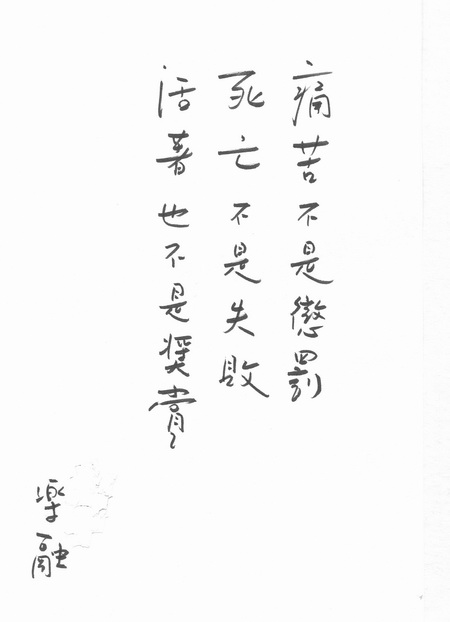 痛苦不是懲罰
死亡不是失敗
活著也不是獎賞
融